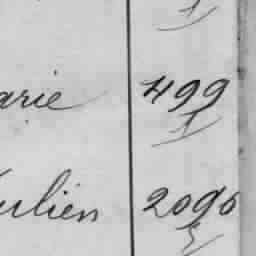 1
arie 499
1
ulien 2096
3